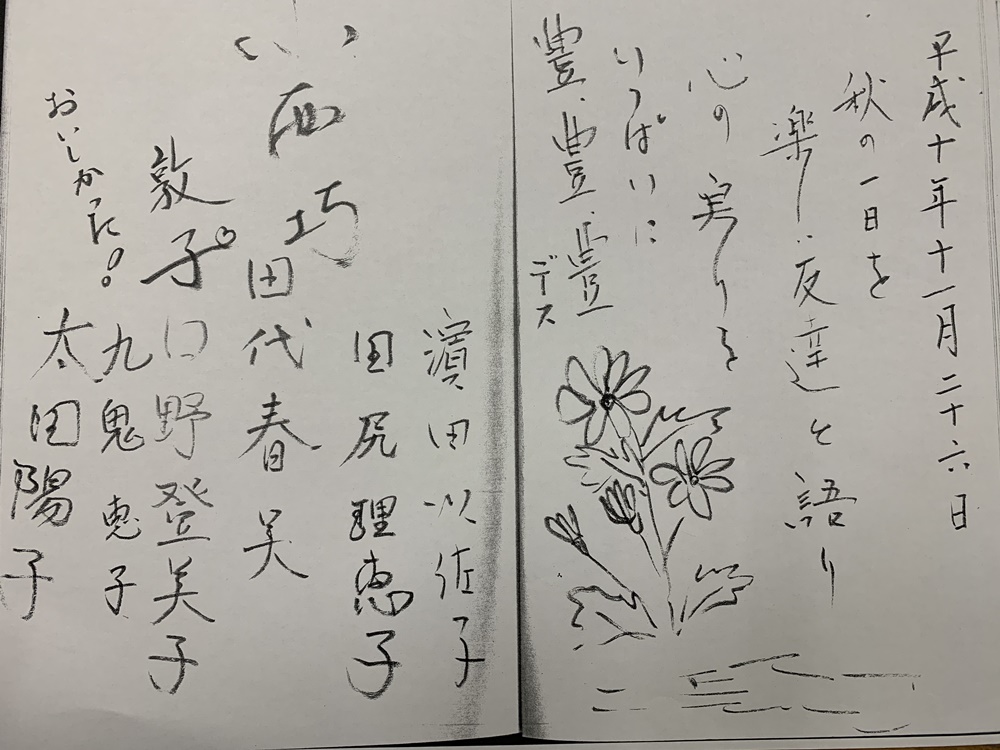 平成十年十一月二十六日
秋の一日を
楽しい友達と語り
心の実りを
いっぱいに
豊、豊、豊
デス
濱田以佐子
田尻理恵子
西巧
田代春美
敦子
口野登美子
九鬼恵子
おいしかった!
太田陽子